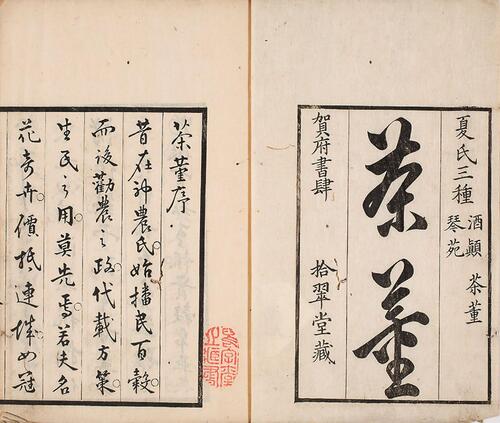 夏氏三種 酒顛 茶董
琴苑
茶董
賀府書肆 拾翠堂藏
茶董序
昔在神農氏。始播民百穀。
而後勸農之政。代載方策。
生民之用。莫先焉。若夫名
花奇卉。價抵連城。如冠